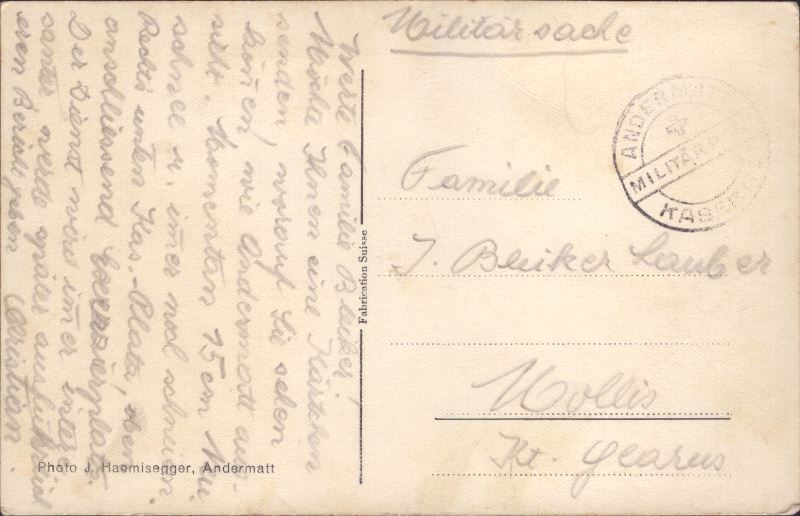 Werte Familie Bleiker!
Möchte Ihnen eine Kärtchen
senden, worauf Sie sehen
kön̄en, wie Andermatt aus-
sieht. Momentan 15 cm Neu-
schnee u. im̄er noch schneien
Rechts unten Kas.-Platz, oben
anschliessend Exerzierplatz
Der Dienst wird im̄er
werde später ausführlich
eren Bericht geben Christian.
Photo J. Haemisegger, Andermatt
Fabrication Suisse
Militärsache
ANDERMATT
MILITÄR
KASER
Familie
J. Bleiker Lauber
Mollis
Kt. Glarus